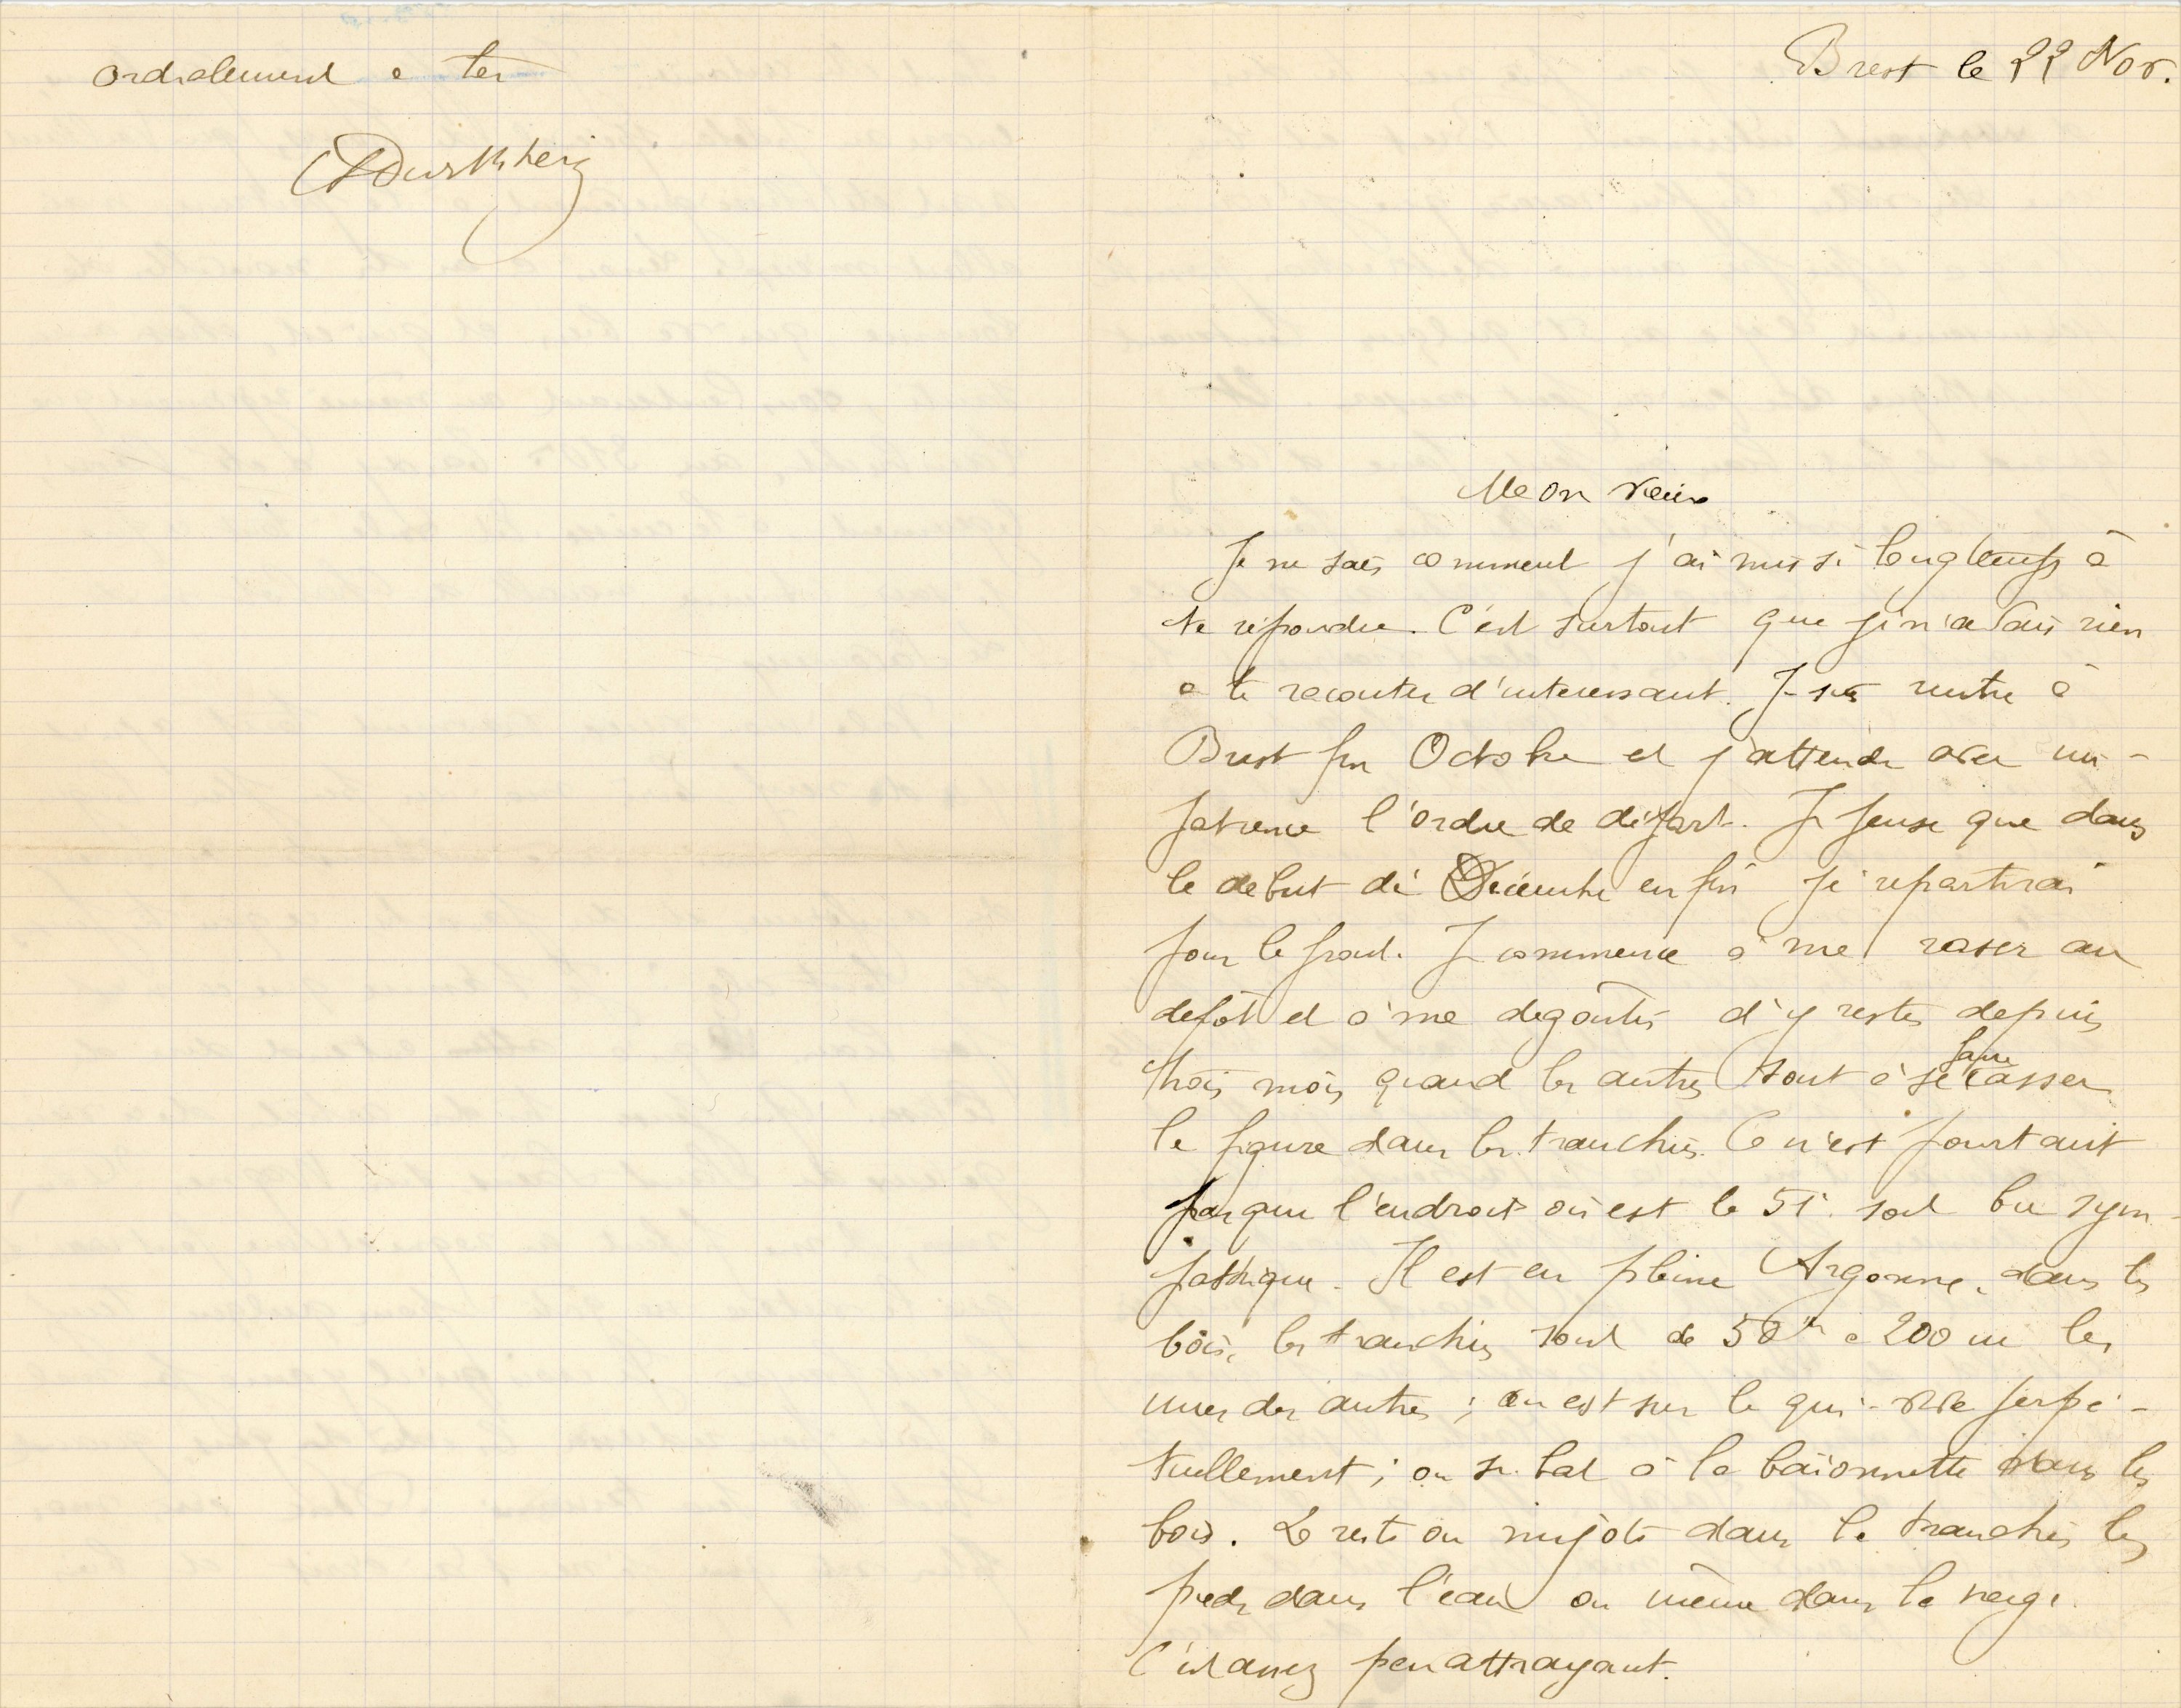 Cordialement à toi
ADurkheim
Brest le 22 Nov.
Mon vieux
Je ne sais comment j'ai mis si longtemps à
te répondre. C'est surtout que je n'avais rien
à te raconter d'interessant. Je suis rentré à
Brest fin Octobre et j'attends avec im-
patience l'ordre de départ. Je pense que dans
le debut de Décembre enfin je repartirai
pour le front. Je commence à me raser au
depôt et à me degoûter d'y rester depuis
trois mois quand les autres sont à se faire casser
la figure dans les tranchées. Ce n'est pourtant
pas que l'endroit où est le 51e soit bien sym-
pathique. Il est en pleine Argonne, dans les
bois, les tranchées sont de 50m à 200 m les
unes des autres ; on est sur le qui-vive perpé-
tuellement ; on se bat à la baïonnette dans les
bois. Le reste on mijote dans la tranchée les
pieds dans l'eau ou même dans la neige.
C'est assez peu attrayant.